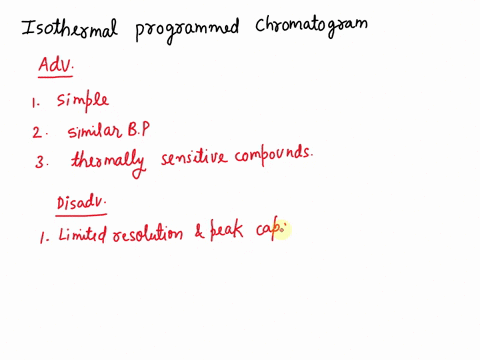 Isothermal programmed chromatogram
Adv.
1. Simple
2. similar B.P
3. thermally sensitive compounds.
Disadv.
1. Limited resolution & peak cap